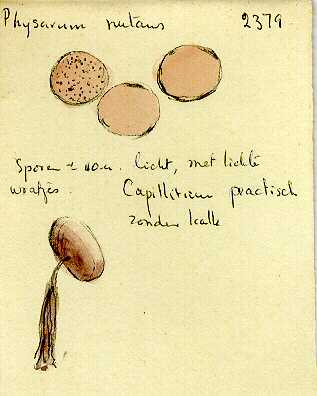 Physarum nutans 2379
Sporen ± 10 u. licht, met lichte
wratjes. Capillitium practisch
zonder kalk